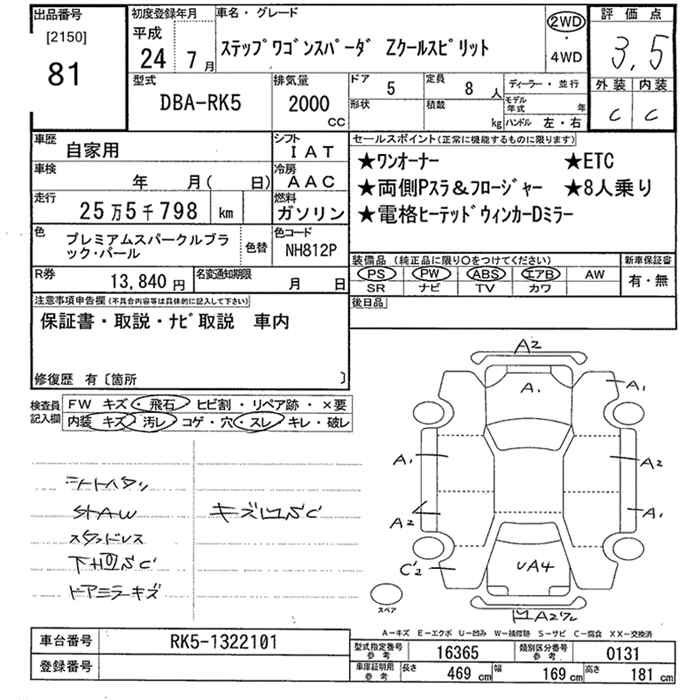 出品番号
[2150]
81
初度登録年月
平成
24年 7月
車名・グレード
ステップワゴンスパーダ Zクールスピリット
2WD
・
4WD
評価点
3,5
外装 内装
C C
型式
DBA-RK5
排気量
2000
CC
ドア
5
定員
8人
形状
積載
kg
ディーラー・並行
モデル年式 年
ハンドル 左・右
車歴
自家用
シフト
IAT
車検
年 月( 日)
冷房
AAC
走行
25万5千798 km
燃料
ガソリン
色
プレミアムスパークルブラック・パール
色替
色コード
NH812P
R券
13,840円
名変通知期限
月 日
セールスポイント(正常に機能するものに限ります)
★ワンオーナー ★ETC
★両側Pスラ&フロージャー ★8人乗り
★電格ヒーテッドウィンカーDミラー
装備品 (純正品に限り○をつけてください)
PS PW ABS エアB AW
SR ナビ TV カワ
新車保証書
有・無
後日品
注意事項申告欄(不具合内容等は具体的に記入して下さい)
保証書・取説・ナビ取説 車内
修復歴 有〔箇所 〕
検査員
記入欄
FW キズ・飛石・ヒビ割・リペア跡・×要
内装 キズ・汚レ・コゲ・穴・スレ・キレ・破レ
シートハタン
キズ凹SC
スタッドレス
下回SC
ドアミラーキズ
A2
A1
A1
A1
A2
A2
A1
C'2
UA4
凹A2ワレ
スペア
A-キズ E-エクボ U-凹み W-補修跡 S-サビ C-腐食 XX-交換済
車台番号
RK5-1322101
登録番号
型式指定番号
参考
16365
類別区分番号
参考
0131
車庫証明用
参考
長さ
469 cm
幅
169 cm
高さ
181 cm